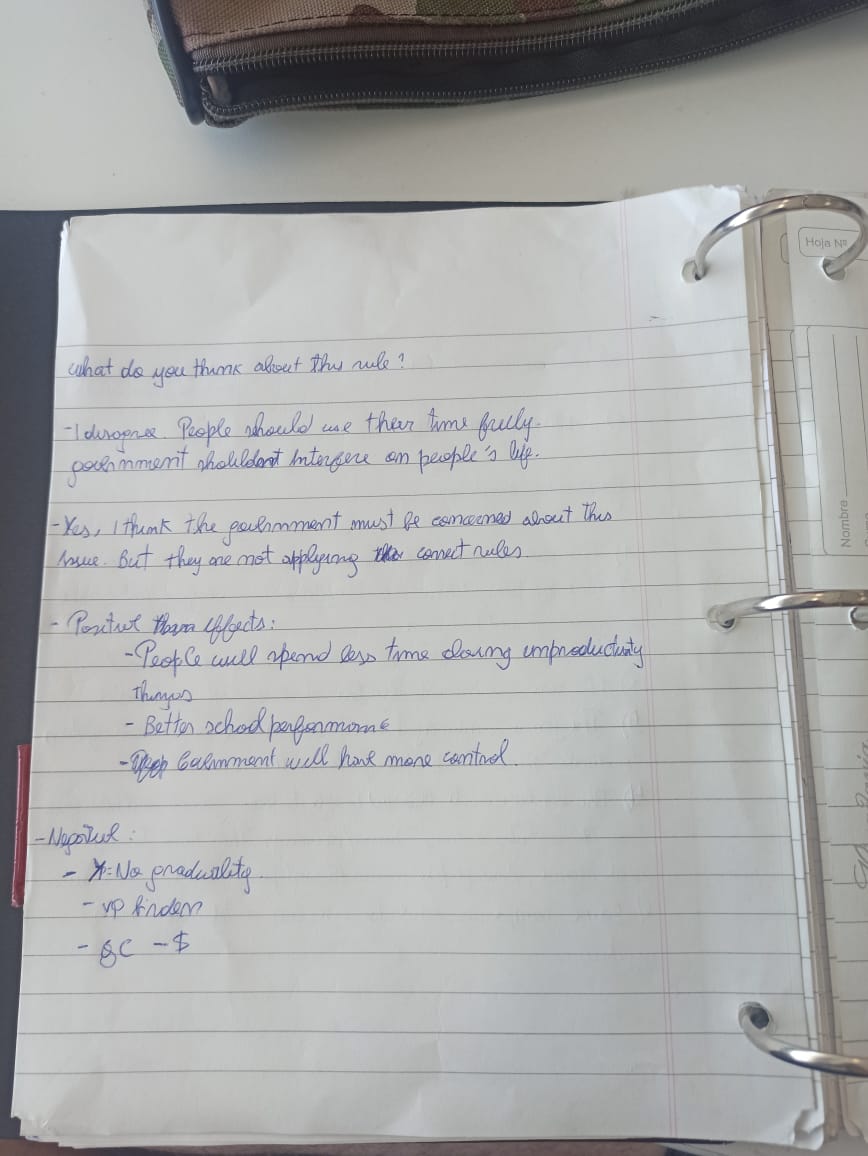 what do you think about this rule?
- I disagree. People should use their time freely.
government shouldont interfere on people's life.
- Yes, I think the government must be concerned about this
issue. But they are not applying the correct rules
- Positive effects:
- People will spend less time doing unproductivity
things
- Better school performance
- Government will have more control.
- Negative:
- No graduality.
- VP
- GC - $
Hoja Nº
Nombre